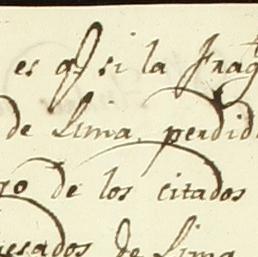 es qe si la Frag
de Lima, perdid
ro de los citados
esados de Lima